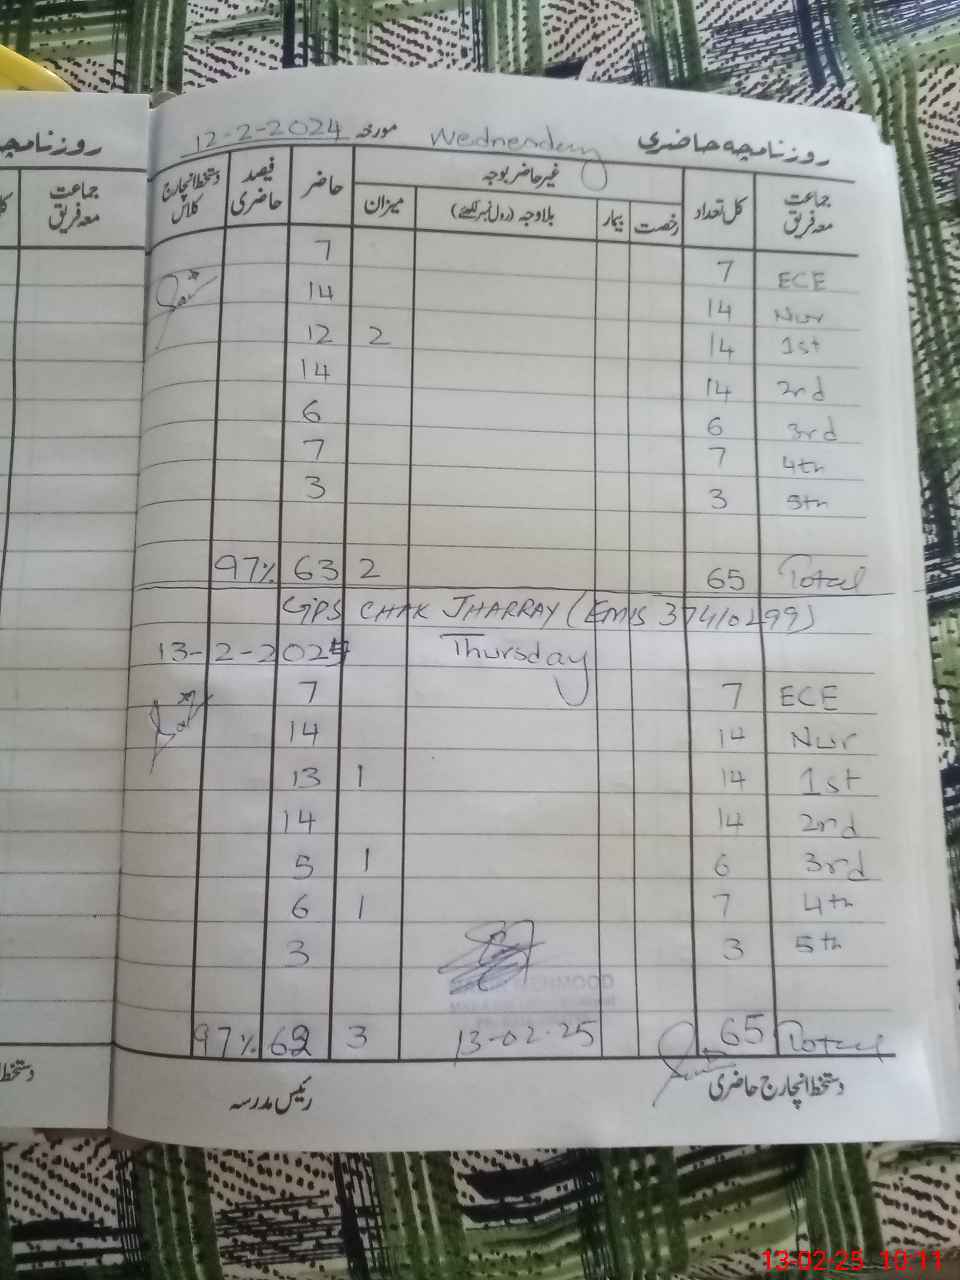 روزنامچہ حاضری Wednesday مورخہ 12-2-2024
جماعت معہ فریق کل تعداد غیر حاضر بوجہ حاضر فیصد حاضری دستخط انچارج کلاس
رخصت بیمار بلاوجہ (رول نمبر لکھئے) میزان
ECE 7 7
Nur 14 14
1st 14 2 12
2nd 14 14
3rd 6 6
4th 7 7
5th 3 3
Total 65 2 63 97%
GPS CHAK JHARRAY (EMIS 37410299)
13-2-2025 Thursday
ECE 7 7
Nur 14 14
1st 14 1 13
2nd 14 14
3rd 6 1 5
4th 7 1 6
5th 3 3
MEHMOOD
Total 65 13-02-25 3 62 97%
دستخط انچارج حاضری رئیس مدرسہ
روزنامچہ
جماعت معہ فریق
13-02-25 10:11